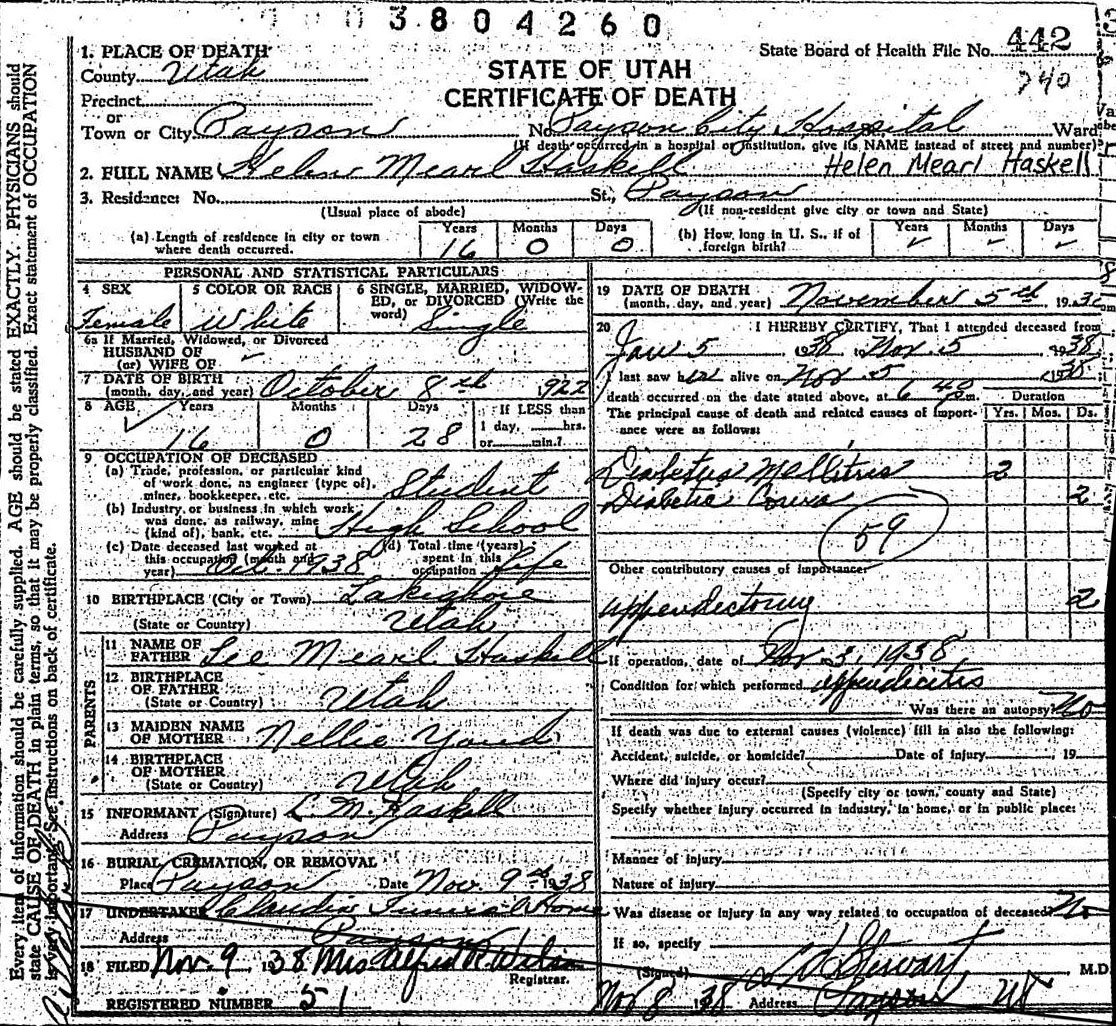 3804260
1. PLACE OF DEATH
County Utah
State Board of Health File No. 442
740
STATE OF UTAH
CERTIFICATE OF DEATH
Precinct
or
Town or City Payson No. Payson City Hospital Ward
(If death occurred in a hospital or institution, give its NAME instead of street and number)
2. FULL NAME Helen Mearl Haskell Helen Mearl Haskell
3. Residence: No. St., Payson
(Usual place of abode) (If non-resident give city or town and State)
(a) Length of residence in city or town where death occurred. Years 16 Months 0 Days 0
(b) How long in U. S., if of foreign birth? Years Months Days
PERSONAL AND STATISTICAL PARTICULARS
4 SEX Female
5 COLOR OR RACE White
6 SINGLE, MARRIED, WIDOWED, or DIVORCED (Write the word) Single
6a If Married, Widowed, or Divorced
HUSBAND OF
(or) WIFE OF
7 DATE OF BIRTH (month, day, and year) October 8th 922
8 AGE Years 16 Months 0 Days 28 If LESS than 1 day, hrs. or min.?
9 OCCUPATION OF DECEASED
(a) Trade, profession, or particular kind of work done, as engineer (type of), miner, bookkeeper, etc. Student
(b) Industry, or business in which work was done, as railway, mine (kind of), bank, etc. High School
(c) Date deceased last worked at this occupation (month and year) Oct. 1938
(d) Total time (years) spent in this occupation Life
10 BIRTHPLACE (City or Town) Lakeshore
(State or Country) Utah
PARENTS
11 NAME OF FATHER Lee Mearl Haskell
12 BIRTHPLACE OF FATHER (State or Country) Utah
13 MAIDEN NAME OF MOTHER Nellie Youd
14 BIRTHPLACE OF MOTHER (State or Country) Utah
15 INFORMANT (Signature) L. M. Haskell
Address Payson
16 BURIAL, CREMATION, OR REMOVAL
Place Payson Date Nov. 9th 1938
17 UNDERTAKER Claudin Funeral Home
Address Payson
18 FILED Nov. 9 1938 Mrs. Alfred R. Wilson
Registrar.
REGISTERED NUMBER 51
19 DATE OF DEATH (month, day, and year) November 5th, 193
20 I HEREBY CERTIFY, That I attended deceased from
Jan 5 1938 Nov. 5 1938
I last saw her alive on Nov. 5 1938
death occurred on the date stated above, at 6 40 m.
Duration
The principal cause of death and related causes of importance were as follows: Yrs. Mos. Ds.
Diabetus Mellitus 2
Diabetic Coma 2
59
Other contributory causes of importance:
appendectomy 2
If operation, date of Nov. 3, 1938
Condition for which performed appendicitis
Was there an autopsy? No
If death was due to external causes (violence) fill in also the following:
Accident, suicide, or homicide? Date of injury 19
Where did injury occur?
(Specify city or town, county and State)
Specify whether injury occurred in industry, in home, or in public place:
Manner of injury
Nature of injury
Was disease or injury in any way related to occupation of deceased? No
If so, specify
(Signed) L D Stewart M.D.
Nov 8 1938 Address Payson Ut
Every item of information should be carefully supplied. AGE should be stated EXACTLY. PHYSICIANS should
state CAUSE OF DEATH in plain terms, so that it may be properly classified. Exact statement of OCCUPATION
is very important. See instructions on back of certificate.